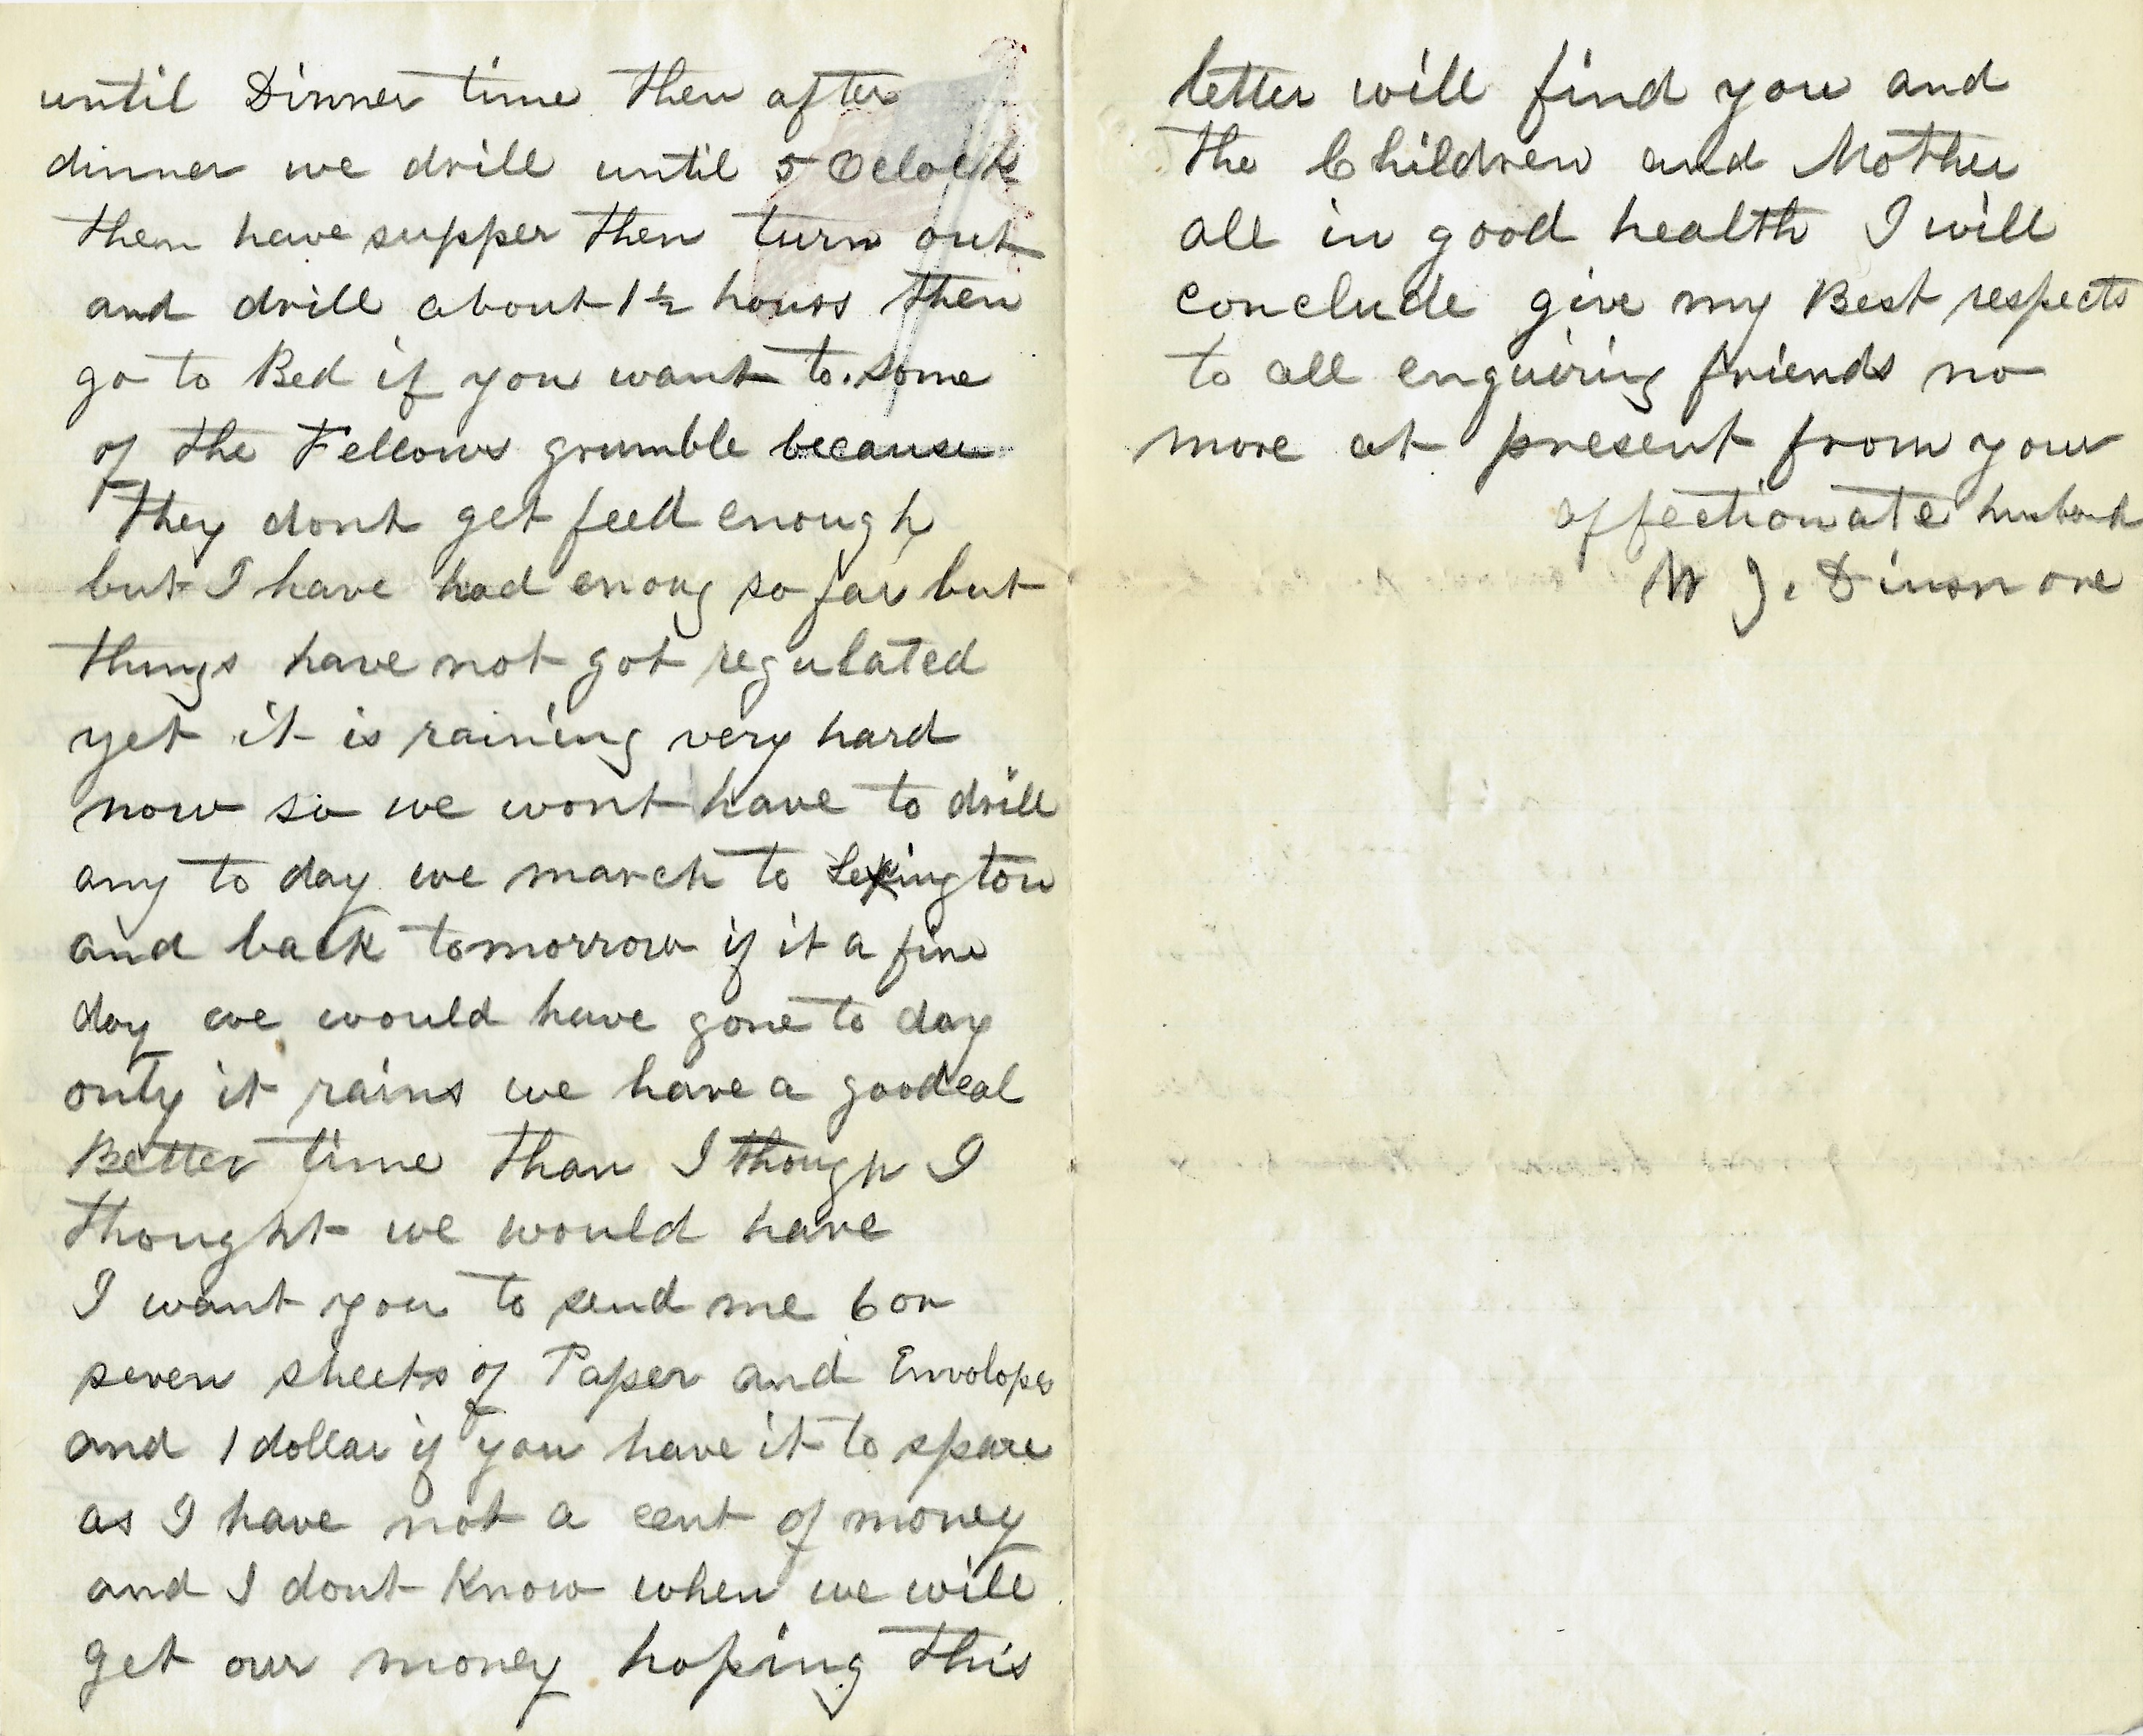 until Dinner time then after
dinner we drill until 5 Oclock
then have supper then turn out
and drill about 1½ hours then
go to Bed if you want to. Some
of the Fellows grumble because
they dont get feed enough
but I have had enoug so far but
things have not got regulated
yet it is raining very hard
now so we wont have to drill
any to day we march to Lexington
and back tomorrow if it a fine
day we would have gone to day
only it rains we have a goodeal
Better time than I though I
thought we would have
I want you to send me 6 or
seven sheets of Paper and Envolope
and 1 dollar if you have it to spare
as I have not a cent of money
and I dont Know when we will
get our money hoping this
letter will find you and
the Children and Mother
all in good health I will
conclude give my Best respects
to all enquiring friends no
more at present from your
affectionate husband
W J. Dinsmore